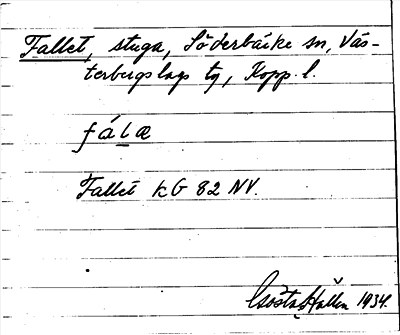 Fallet, stuga, Söderbärke sn,Väs-
terbergslags tg, Kopp. l.
fála
Fallet kG 82 NV.
Gösta Hallén 1934.